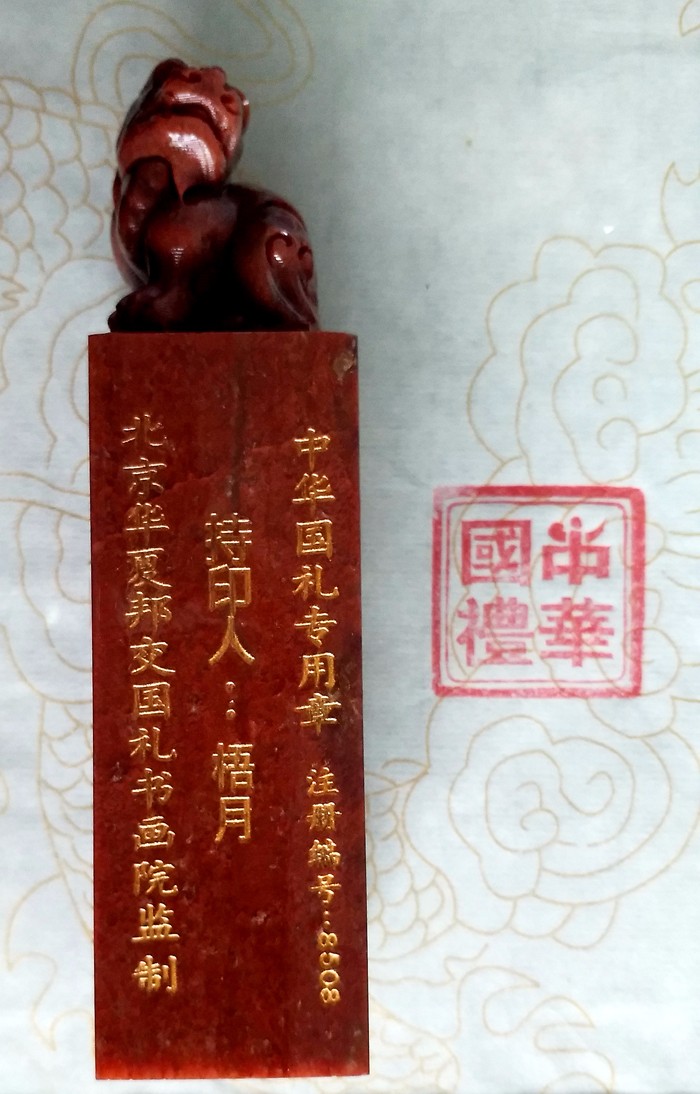 中华国礼专用章 注册编号:8508
持印人:梧月
北京华夏邦交国礼书画院监制
中華
國禮